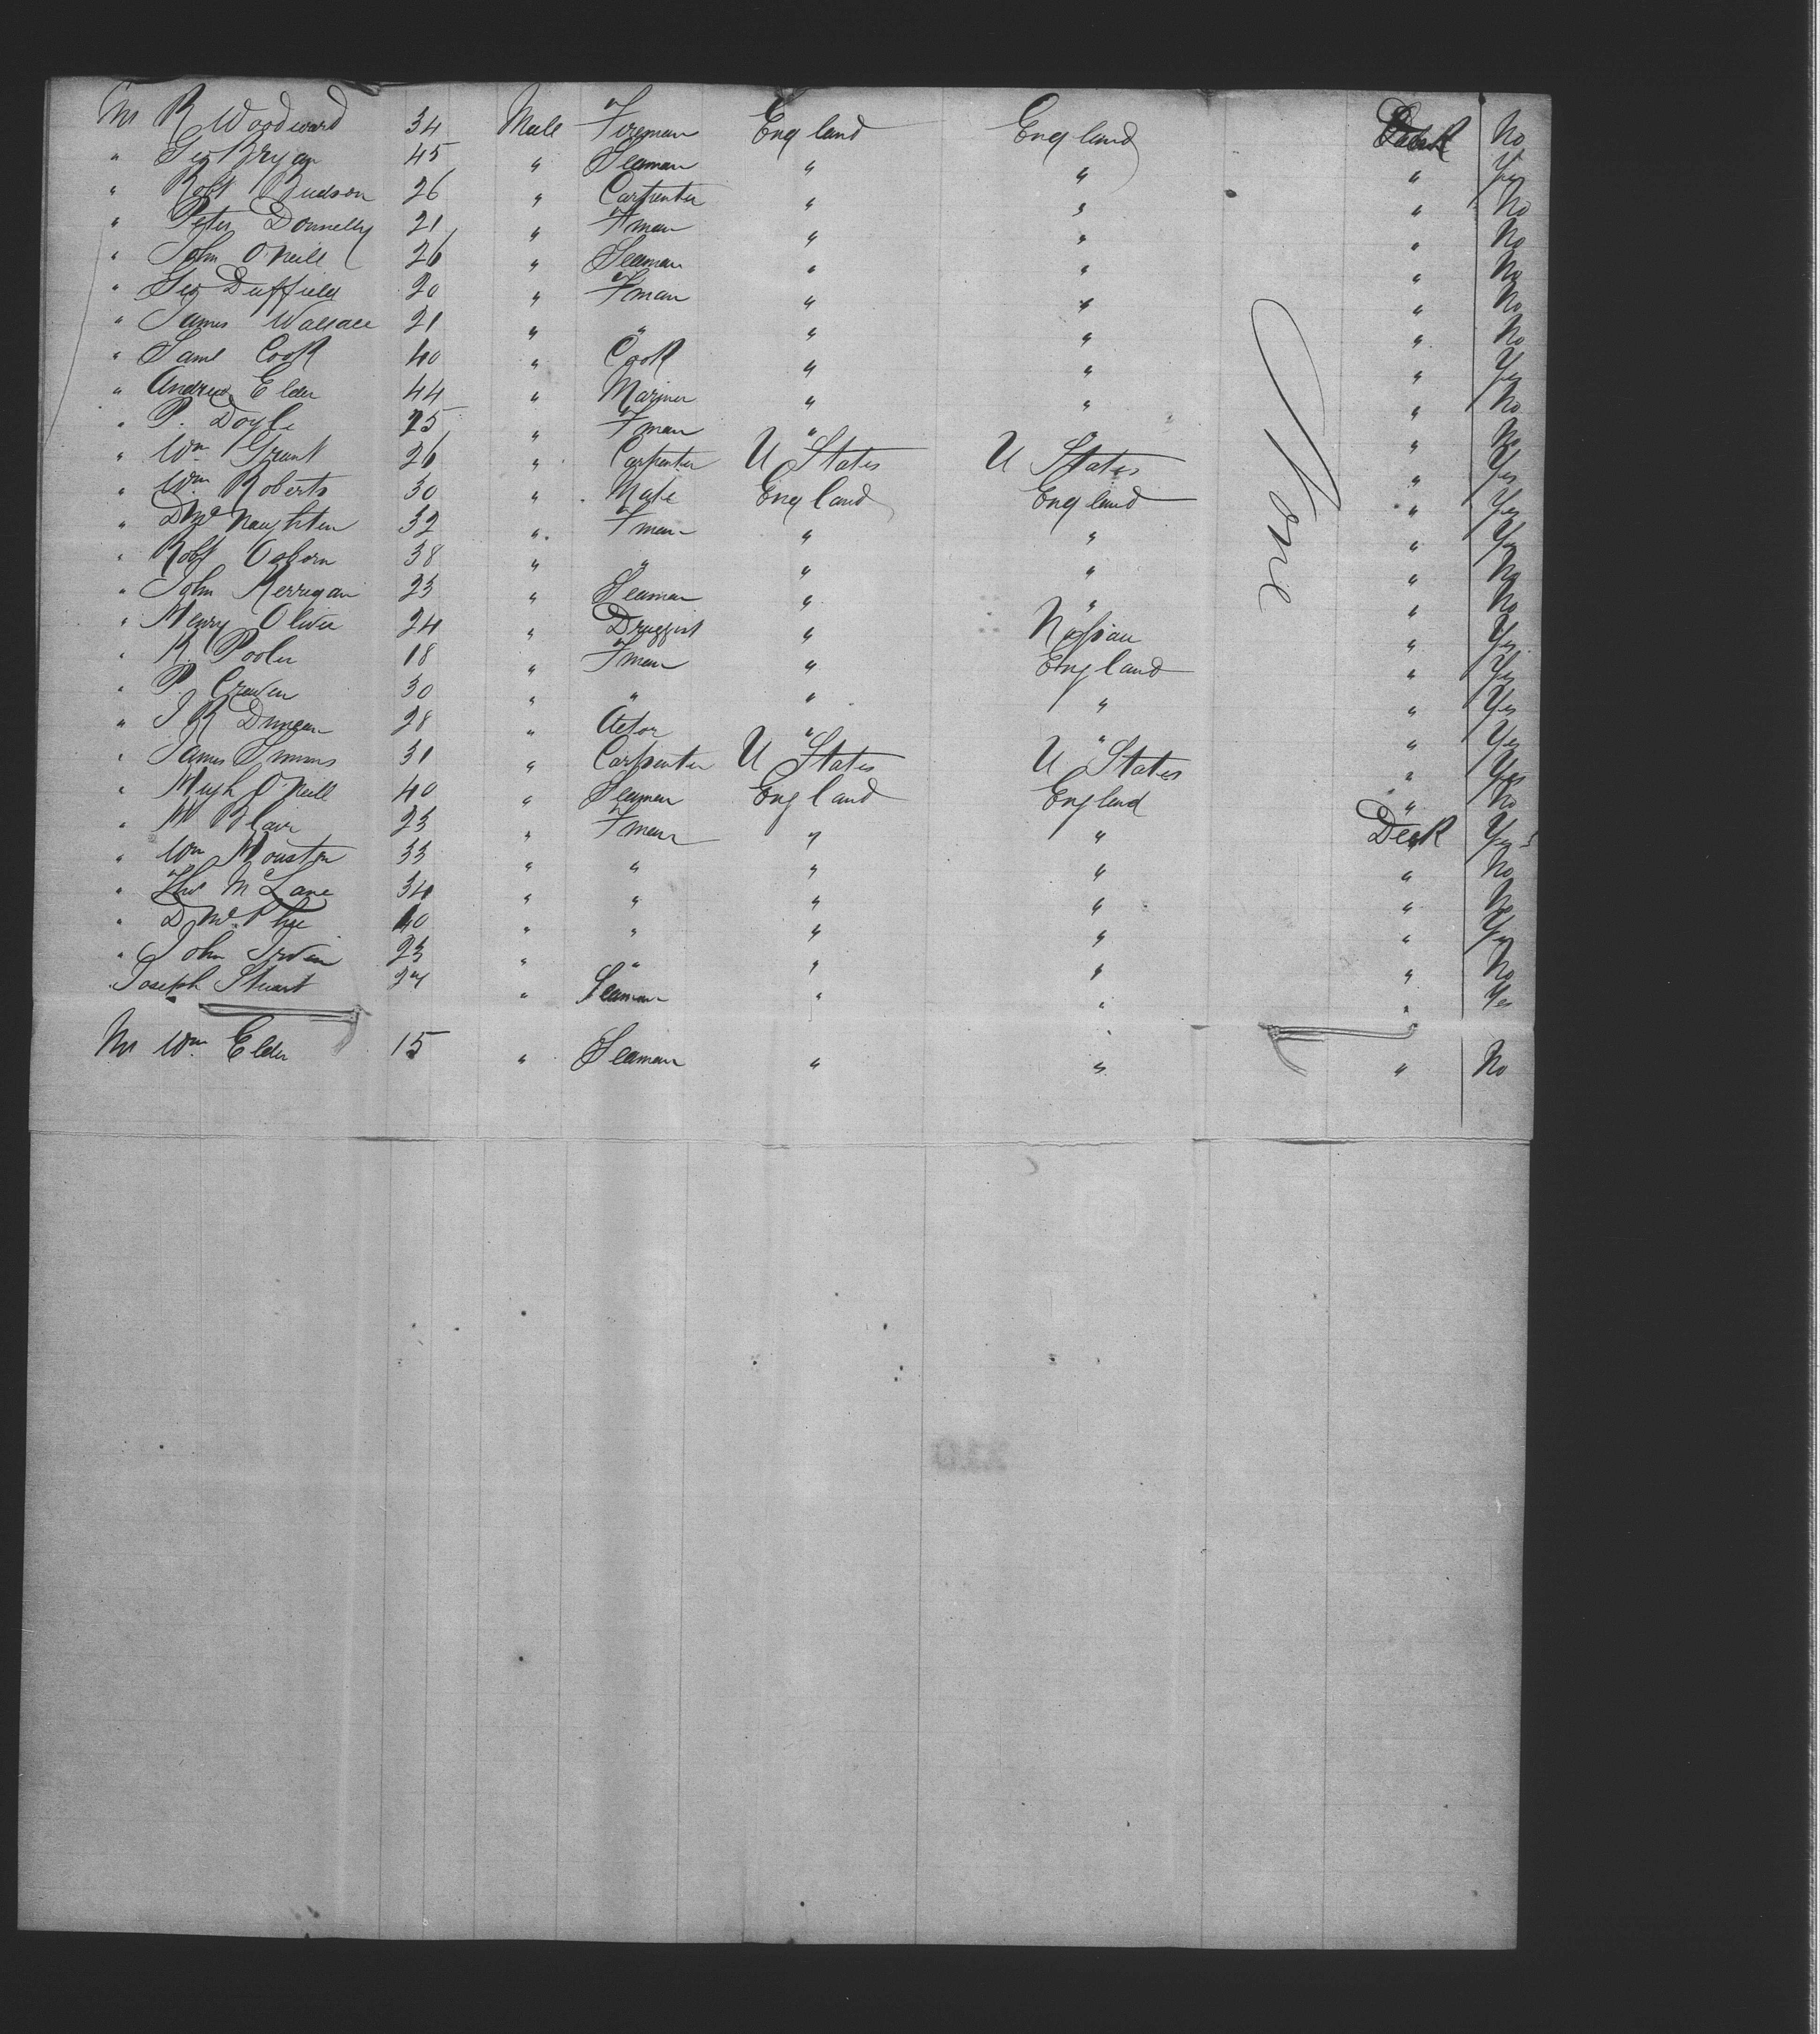 Mr R Woodward 34 Male Fireman England England Deck No
" Geo Bryan 45 " Seaman " " " Yes
" Robt Hudson 26 " Carpenter " " " No
" Peter Donnelly 21 " Fman " " " No
" John O'Neill 26 " Seaman " " " No
" Geo Duffield 20 " Fman " " " No
" James Wallace 21 " " " " " No
" Saml Cook 40 " Cook " " " Yes
" Andrew Elder 44 " Mariner " " " No
" P. Doyle 25 " Fman " " " No
" Wm Grant 26 " Carpenter U States U States " Yes
" Wm Roberts 30 " Mate England England " Yes
" D McNaughten 32 " Fman " " " Yes
" Robt Osborn 38 " " " " " No
" John Kerrigan 23 " Seaman " " " No
" Henry Oliver 24 " Druggist " Nassau " Yes
" R. Pooler 18 " Fman " England " Yes
" P. Craven 30 " " " " " Yes
" J R Duncan 28 " Actor " " " Yes
" James Simms 31 " Carpenter U States U States " Yes
" Hugh O'Neill 40 " Seaman England England " No
" H Blair 23 " Fman " " Deck Yes
" Wm Houston 33 " " " " " No
" Thos McLane 34 " " " " " No
" D McPhee 40 " " " " " Yes
" John Irwin 23 " " " " " No
Joseph Stuart 24 " Seaman " " " Yes
Mr Wm Elder 15 " Seaman " " " No
None